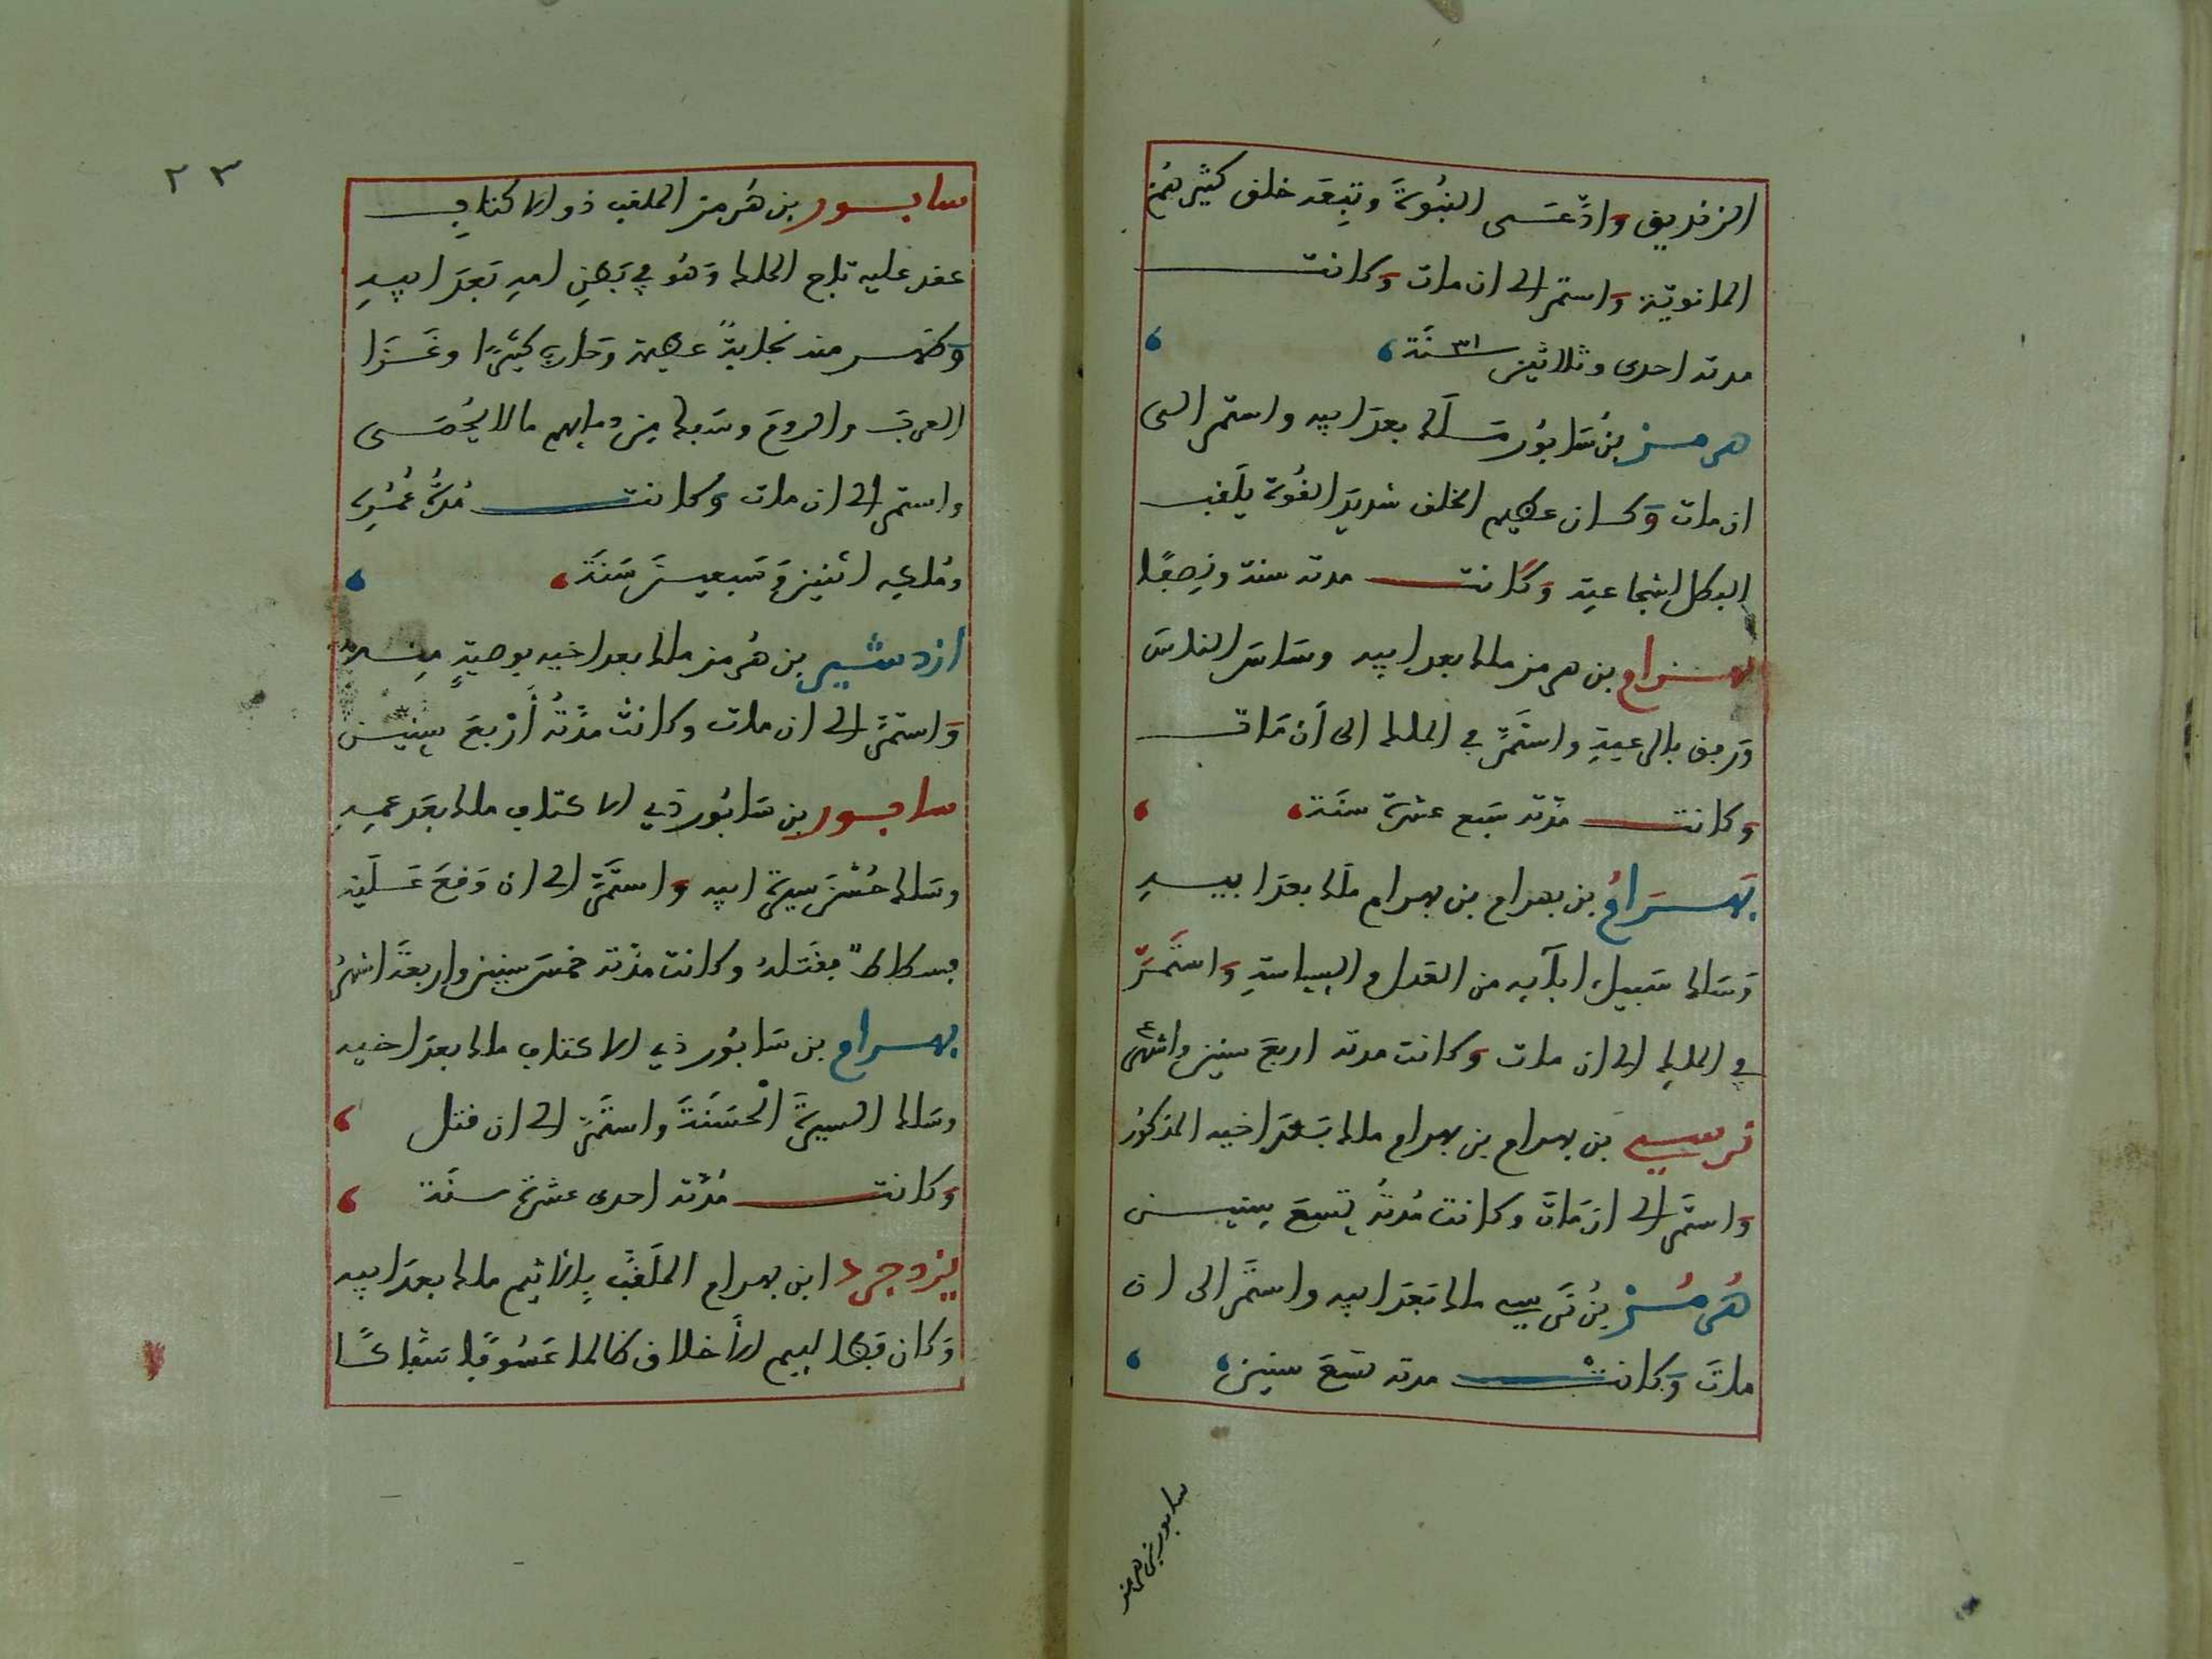 الزنديق وادَّعى النبُوةَ وتبِعَه خلق كثير همُ
المانويّة واستمر الى ان مات وكانت
مدته احدى وثلاثين ٣١ سنَة
هرمز بن سَابُور مَلَك بعدَ ابيه واستمر الى
ان مات وَكان عظيم الخلق شديدَ القُوة يلَقب
البطل لشجاعتِه وَكانت مدته سنة ونِصفًا
بهرام بن هرمز ملك بعد ابيه وسَاسَ الناسَ
وَرفق بالرعيةِ واستَمرَّ في الملك الى أَن مَات
وكانت مدّته سَبع عشرة سنَة
بَهرَامُ بن بهرام بن بهرام ملَك بعدَ ابيهِ
وَسَلك سَبيل ابآيه من العَدل والسِياسَةِ وَاستَمَرّ
في الملكِ الى ان مات وَكانت مدته اربعَ سنِين ٤ اشهر
نرسي بن بهرام بن بهرام ملك بَعدَ اخيه المذكوُر
وَاستَمر الى ان مَاتَ وكانت مُدّتُه تِسعَ سِنين
هُرمُز بنُ نَرسِي ملك بَعدَ ابيه واستَمَر الى ان
ماتَ وَكانتْ مدته تسَعَ سِنين
سابور بن هرمز
٢٣
سابور بن هُرمز الملقب ذو الاكتافِ
عقد عليه تاج الملك وَهُو في بَطنِ امهِ بَعدَ ابيهِ
وَظهر منه نجابةً عظيمة وَحارب كثيرًا وغَزَا
العربَ والرومَ وسَفك مِن دمايهم مالا يُحْصَى
واستمر الى ان مات وكانت مُدّةُ عُمُرِه
ومُلكِه اثنين وَسَبعينَ سَنَة
ازدشير بن هُرمز ملك بعد اخيه بوصيّةٍ مِنه
وَاستمَرَّ الى ان مات وكانتْ مدّتُه أَرْبعَ سِنين
سابور بن سَابُور ذي الاكتاف ملك بعَد عمهِ
وسَلك حُسْن سيرة ابيه وَاستَمَرَّ الى ان وَقعَ عَلَيه
فسطاطٌ فقَتلهُ وكانت مدّته خمسَ سنين واربعَة اشهُر
بهرام بن سَابُور ذي الاكتاف ملك بعدَ اخيه
وسَلك السيرةَ الْحسَنَةَ واستَمَرّ الى ان قتل
وَكانت مُدّته احدى عشرة سنَة
يزدجرد ابن بهرام الملَقَّب بِالاثيم ملك بعدَ ابيه
وَكان فَظا لييم الأخلاق ظالما عَسُوفًا سَفّاكًا